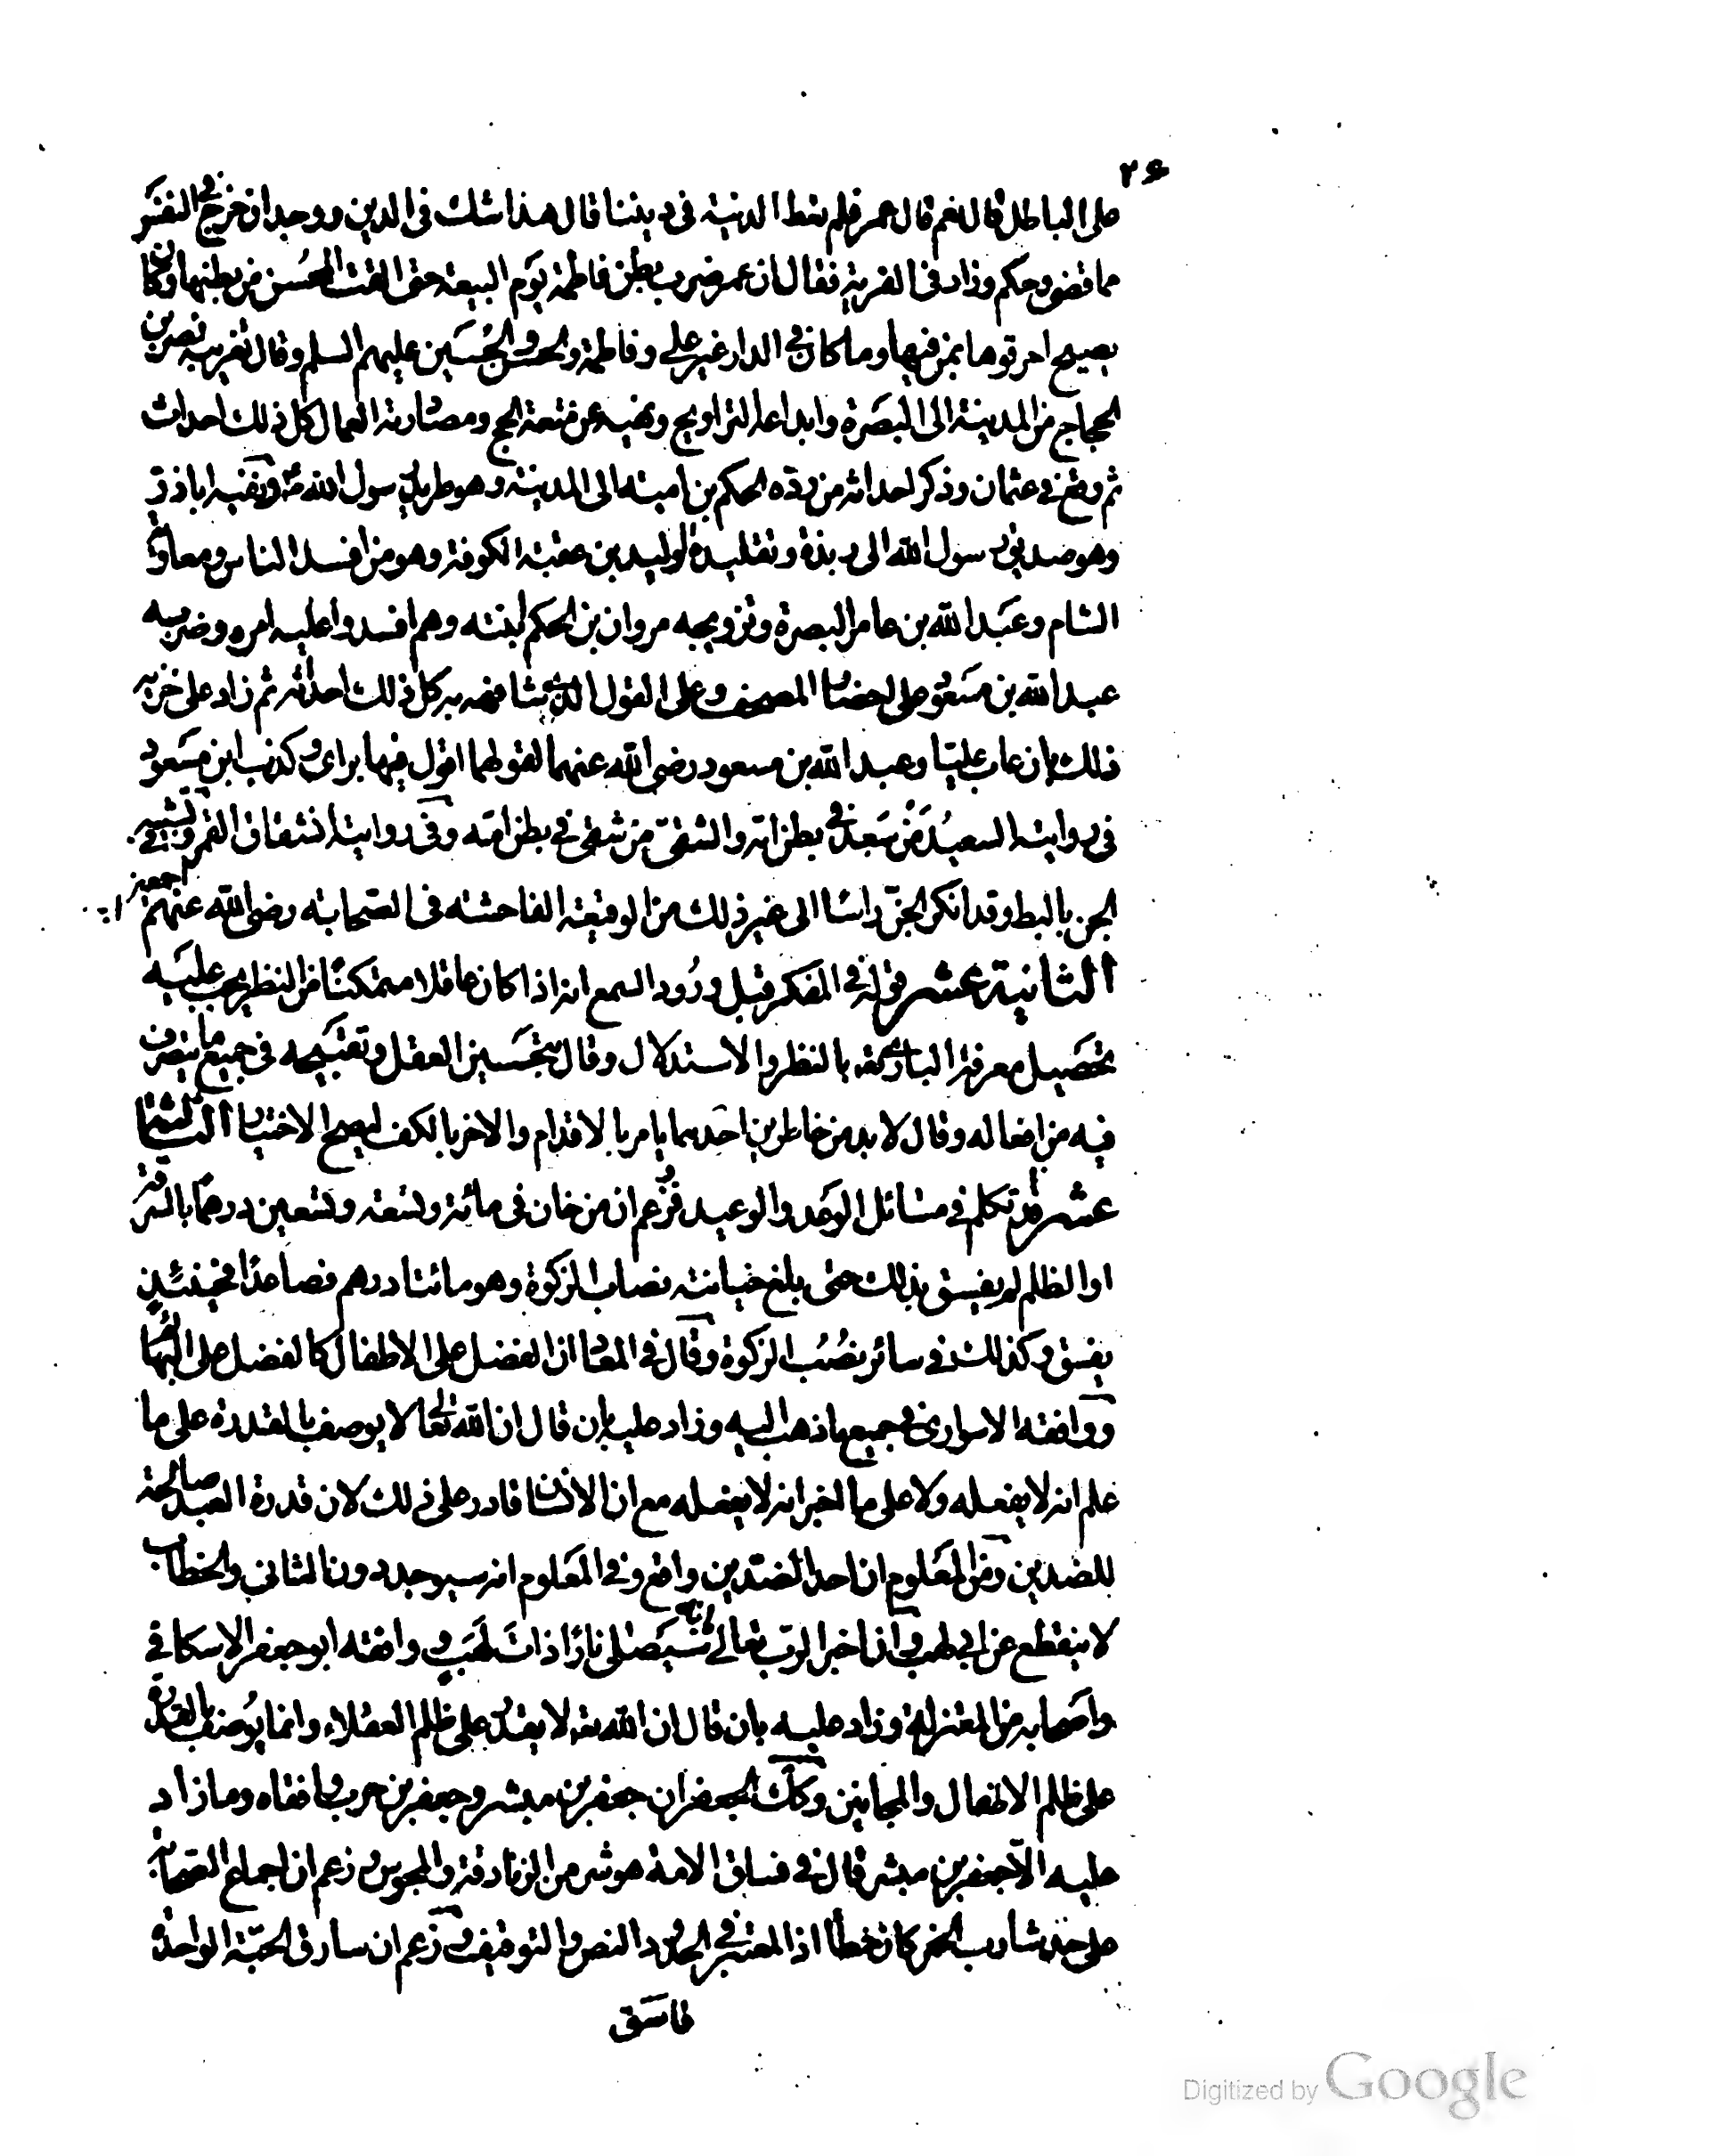 ٢٦
على الباطل قال نعم قال عمر فلم نعط الدنية فى ديننا قال هذا شك فى الدين ووجدان حرج فى النفس
مما قضى وحكم وزاد فى الفرية فقال ان عمر ضرب بطن فاطمة يوم البيعة حتى القت المحسن من بطنها وكان
يصيح احرقوها بمن فيها وما كان فى الدار غير على وفاطمة والحسن والحسين عليهم السلم وقال تغريبه نصر بن
الحجاج من المدينة الى البصرة وابداعه التراويح ونهيه عن متعة الحج ومصادرته العمال كل ذلك احداث
ثم وقع فى عثمان وذكر احداثه من رده الحكم بن امية الى المدينة وهو طريد رسول الله ونفيه اباذر
وهو صديق رسول الله الى ربذة وتقليده الوليد بن عقبة الكوفة وهو من افسد الناس ومعاوية
الشام وعبد الله بن عامر البصرة وتزويجه مروان بن الحكم ابنته وهم افسدوا عليه امره وضربه
عبد الله بن مسعود على احضار المصحف وعلى القول الذى شافهه به كل ذلك احداثه ثم زاد على خزيه
ذلك بان عاب عليا وعبد الله بن مسعود رضى الله عنهما لقولهما اقول فيها براى وكذب ابن مسعود
فى روايته السعيد من سعد فى بطن امه والشقى من شقى فى بطن امه وفى روايته انشقاق القمر وفى تشبيه
الجن بالبط وقد انكر الجن راسا الى غير ذلك من الوقيعة الفاحشة فى الصحابة رضى الله عنهم اجمعين
الثانية عشر قوله فى المفكر قبل ورود السمع انه اذا كان عاقلا متمكنا من النظر يجب عليه
تحصيل معرفة البارى تعه بالنظر والاستدلال وقال بتحسين العقل وتقبيحه فى جميع ما يتصرف
فيه من افعاله وقال لا بد من خاطرين احدهما يامر بالاقدام والاخر بالكف ليصح الاختيار الثالثة
عشر قد تكلم فى مسائل الوعد والوعيد فزعم ان من خان فى مائة وتسعة وتسعين درهما بالسرقة
او الظلم لم يفسق بذلك حتى بلغ خيانته نصاب الزكوة وهو مائتا درهم فصاعدا فحينئذ
يفسق وكذلك فى سائر نصب الزكوة وقال فى المعاد ان الفضل على الاطفال كالفضل على البهائم
ووافقه الاسوارى فى جميع ما ذهب اليه وزاد عليه بان قال ان الله تعالى لا يوصف بالقدرة على ما
علم انه لا يفعله ولا على ما اخبر انه لا يفعله مع ان الانسان قادر على ذلك لان قدرة العبد صالحة
للضدين ومن المعلوم ان احد الضدين واقع وفى المعلوم انه سيوجد دون الثانى والخطاب
لا ينقطع عن ابى لهب وان اخبر الرب تعالى بانه سيصلى نارا ذات لهب ووافقه ابو جعفر الاسكافى
واصحابه من المعتزلة وزاد عليه بان قال ان الله تعه لا يقدر على ظلم العقلاء وانما يوصف بالقدرة
على ظلم الاطفال والمجانين وكك الجعفران جعفر بن مبشر وجعفر بن حرب وافقاه وما زاد
عليه الا جعفر بن مبشر قال فى فساق الامة هو شر من الزنادقة والمجوس وزعم ان اجماع الصحابة
على حد شارب الخمر كان خطأ اذ المعتبر فى الحدود النص والتوقيف وزعم ان سارق الحبة الواحدة
فاسق
Digitized by Google